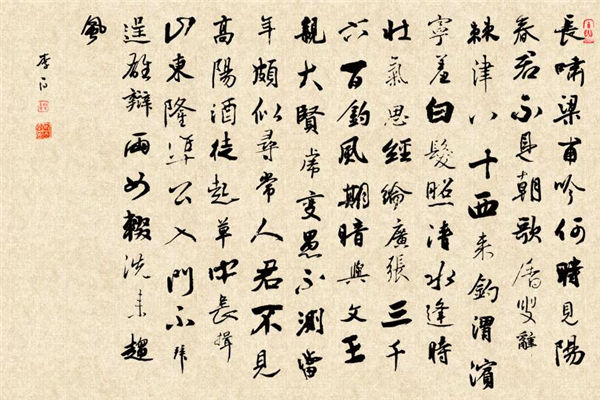 長嘯梁甫吟何時見陽
春君不見朝歌屠叟離
棘津八十西來釣渭濱
寧羞白髮照清水逢時
壯氣思經綸廣張三千
六百釣風期暗與文王
親大賢虎變愚不測當
年頗似尋常人君不見
高陽酒徒起草中長揖
山東隆準公入門不拜
逞雄辯兩女輟洗來趨
風
李